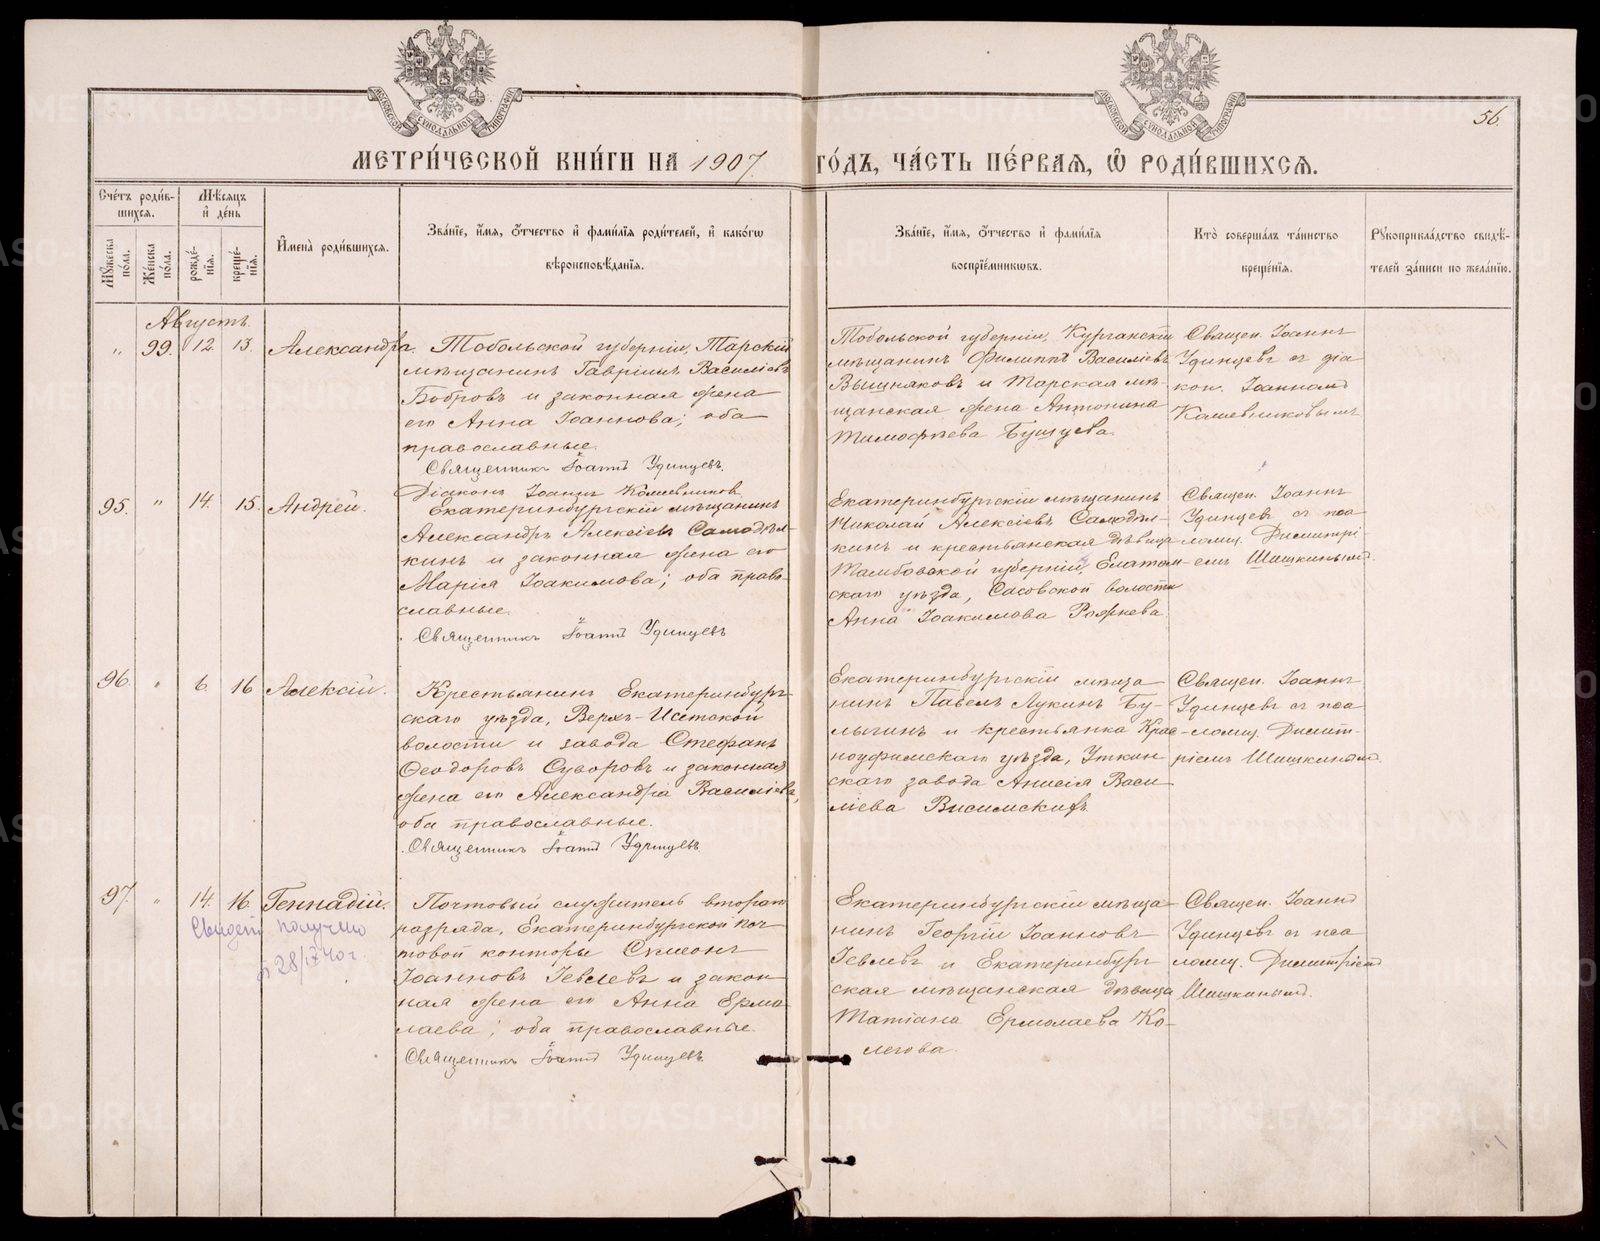 МОСКОВСКОЙ СѴНОДАЛЬНОЙ ТИПОГРАФІИ
МОСКОВСКОЙ СѴНОДАЛЬНОЙ ТИПОГРАФІИ
56.
МЕТРИ́ЧЕСКОЙ КНИ́ГИ НА 1907 ГО́ДЪ, ЧА́СТЬ ПЕ́РВАЯ, Ѡ҆ РОДИ́ВШИХСЯ.
Сче́тъ роди́вшихся.
Мꙋ́жеска по́ла.
Же́нска по́ла.
Мѣ́сяцъ и҆ де́нь
рожде́нїя.
креще́нїя.
И҆мена̀ роди́вшихся.
Зва́нїе, и҆́мя, ѻ҆́тчество и҆ фами́лїя роди́телей, и҆ како́гѡ
вѣроисповѣ́данїя.
Зва́нїе, и҆́мя, ѻ҆́тчество и҆ фами́лїя
воспрїе́мниковъ.
Кто̀ соверша́лъ та́инство
креще́нїя.
Рꙋкоприкла́дство свидѣ́телей за́писи по жела́нїю.
Августъ.
" 99. 12. 13. Александра.
Тобольской губерніи, Тарскій
мѣщанинъ Гавріилъ Василіевъ
Бобровъ и законная жена
его Анна Іоаннова; оба
православные.
Священникъ Іоаннъ Удинцевъ.
Діаконъ Іоаннъ Кошевниковъ
Тобольской губерніи, Курганскій
мѣщанинъ Филиппъ Василіевъ
Вышняковъ и Тарская мѣ-
щанская жена Антонина
Тимофѣева Бушуева.
Священ. Іоаннъ
Удинцевъ съ діа
кон. Іоанномъ
Кошевниковымъ
95. " 14. 15. Андрей.
Екатеринбургскій мѣщанинъ
Александръ Алексіевъ Самодѣл-
кинъ и законная жена его
Марія Іоакимова; оба право-
славные.
Священникъ Іоаннъ Удинцевъ
Екатеринбургскій мѣщанинъ
Николай Алексіевъ Самодѣл-
кинъ и крестьянская дѣвица
Тамбовской губерніи, Елатом-
скаго уѣзда, Сасовской волости
Анна Іоакимова Рожнева.
Священ. Іоаннъ
Удинцевъ съ пса
ломщ. Димитрі-
емъ Шишкинымъ
96. " 6. 16 Алексій.
Крестьянинъ Екатеринбург-
скаго уѣзда, Верхъ-Исетской
волости и завода Стефанъ
Ѳеодоровъ Суворовъ и законная
жена его Александра Василіева,
оба православные.
Священникъ Іоаннъ Удинцевъ
Екатеринбургскій мѣща
нинъ Павелъ Лукинъ Бу-
лыгинъ и крестьянка Крас-
ноуфимскаго уѣзда, Уткин
скаго завода Анисія Васи
ліева Висимскихъ
Священ. Іоаннъ
Удинцевъ съ пса
ломщ. Димит-
ріемъ Шишкинымъ.
97. " 14. 16. Геннадій.
Свидет получено
28/IX 40 г.
Почтовый служитель втораго
разряда, Екатеринбургской поч
товой конторы Симеонъ
Іоанновъ Іевлевъ и закон
ная жена его Анна Ермо
лаева; оба православные.
Священникъ Іоаннъ Удинцевъ
Екатеринбургскій мѣща
нинъ Георгій Іоанновъ
Іевлевъ и Екатеринбург
ская мѣщанская дѣвица
Татіана Ермолаева Ко-
легова.
Священ. Іоаннъ
Удинцевъ съ пса
ломщ. Димитріемъ
Шишкинымъ.
METRIKI.GASO-URAL.RU